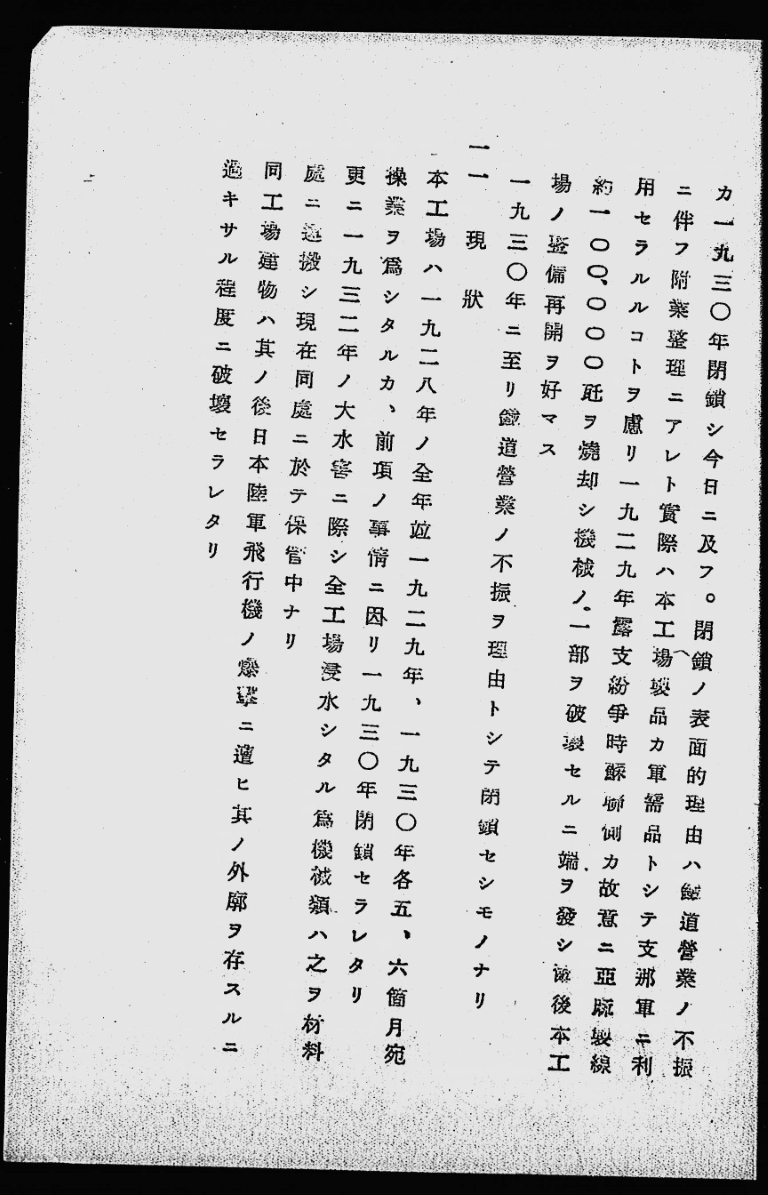 カ一九三〇年閉鎖シ今日ニ及フ。閉鎖ノ表面的理由ハ鐵道營業ノ不振
ニ伴フ附業整理ニアレト實際ハ本工場製品カ軍需品トシテ支那軍ニ利
用セラルルコトヲ慮リ一九二九年露支紛爭時蘇聯側カ故意ニ亞麻製線
約一〇〇、〇〇〇瓩ヲ燒却シ機械ノ一部ヲ破壞セルニ端ヲ發シ爾後本工
場ノ整備再開ヲ好マス
一九三〇年ニ至リ鐵道營業ノ不振ヲ理由トシテ閉鎖セシモノナリ
二　現狀
本工場ハ一九二八年ノ全年竝一九二九年、一九三〇年各五、六箇月宛
操業ヲ爲シタルカ、前項ノ事情ニ因リ一九三〇年閉鎖セラレタリ
更ニ一九三二年ノ大水害ニ際シ全工場浸水シタル爲機械類ハ之ヲ材料
處ニ運搬シ現在同處ニ於テ保管中ナリ
同工場建物ハ其ノ後日本陸軍飛行機ノ爆擊ニ遭ヒ其ノ外廓ヲ存スルニ
過キサル程度ニ破壞セラレタリ